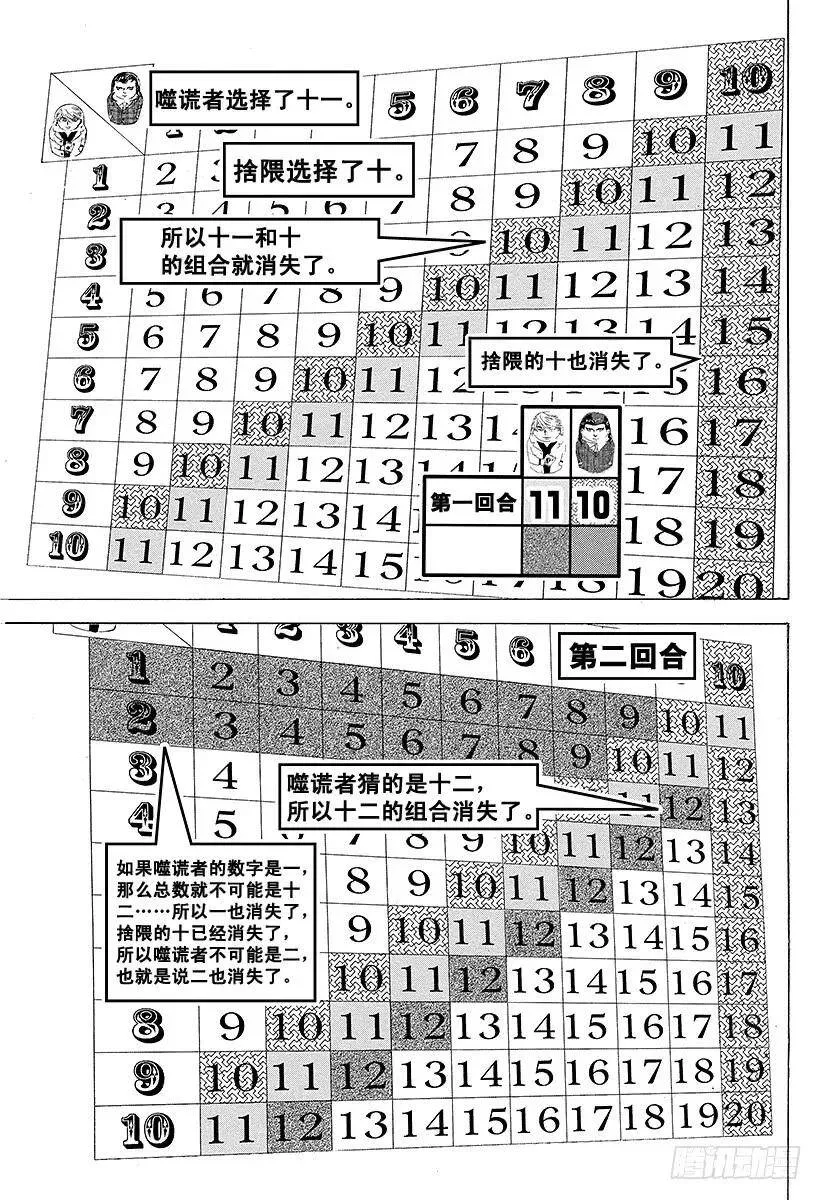 噬谎者选择了十一。
5 6 7 8 9 10
1 2 3 7 8 9 10 11
捨隈选择了十。
2 3 4 5 6 7 8 9 10 11 12
所以十一和十
的组合就消失了。
3 9 10 11 12 13
4 5 6 7 8 9 10 11 12 13 14
5 6 7 8 9 10 11 12 13 14 15
捨隈的十也消失了。
6 7 8 9 10 11 12 15 16
7 8 9 10 11 12 13 14 16 17
8 9 10 11 12 13 14 17 18
第一回合 11 10
9 10 11 12 13 14 18 19
10 11 12 13 14 15 16 17 18 19 20
第二回合
1 2 3 4 5 6 10
1 2 3 4 5 6 7 8 9 10 11
2 3 4 5 6 7 8 9 10 11 12
3 4 11 12 13
噬谎者猜的是十二,
所以十二的组合消失了。
4 5 6 7 8 9 10 11 12 13 14
如果噬谎者的数字是一,
那么总数就不可能是十
二……所以一也消失了,
捨隈的十已经消失了,
所以噬谎者不可能是二,
也就是说二也消失了。
8 9 10 11 12 13 14 15
9 10 11 12 13 14 15 16
10 11 12 13 14 15 16 17
8 9 10 11 12 13 14 15 16 17 18
9 10 11 12 13 14 15 16 17 18 19
10 11 12 13 14 15 16 17 18 19 20
腾讯动漫